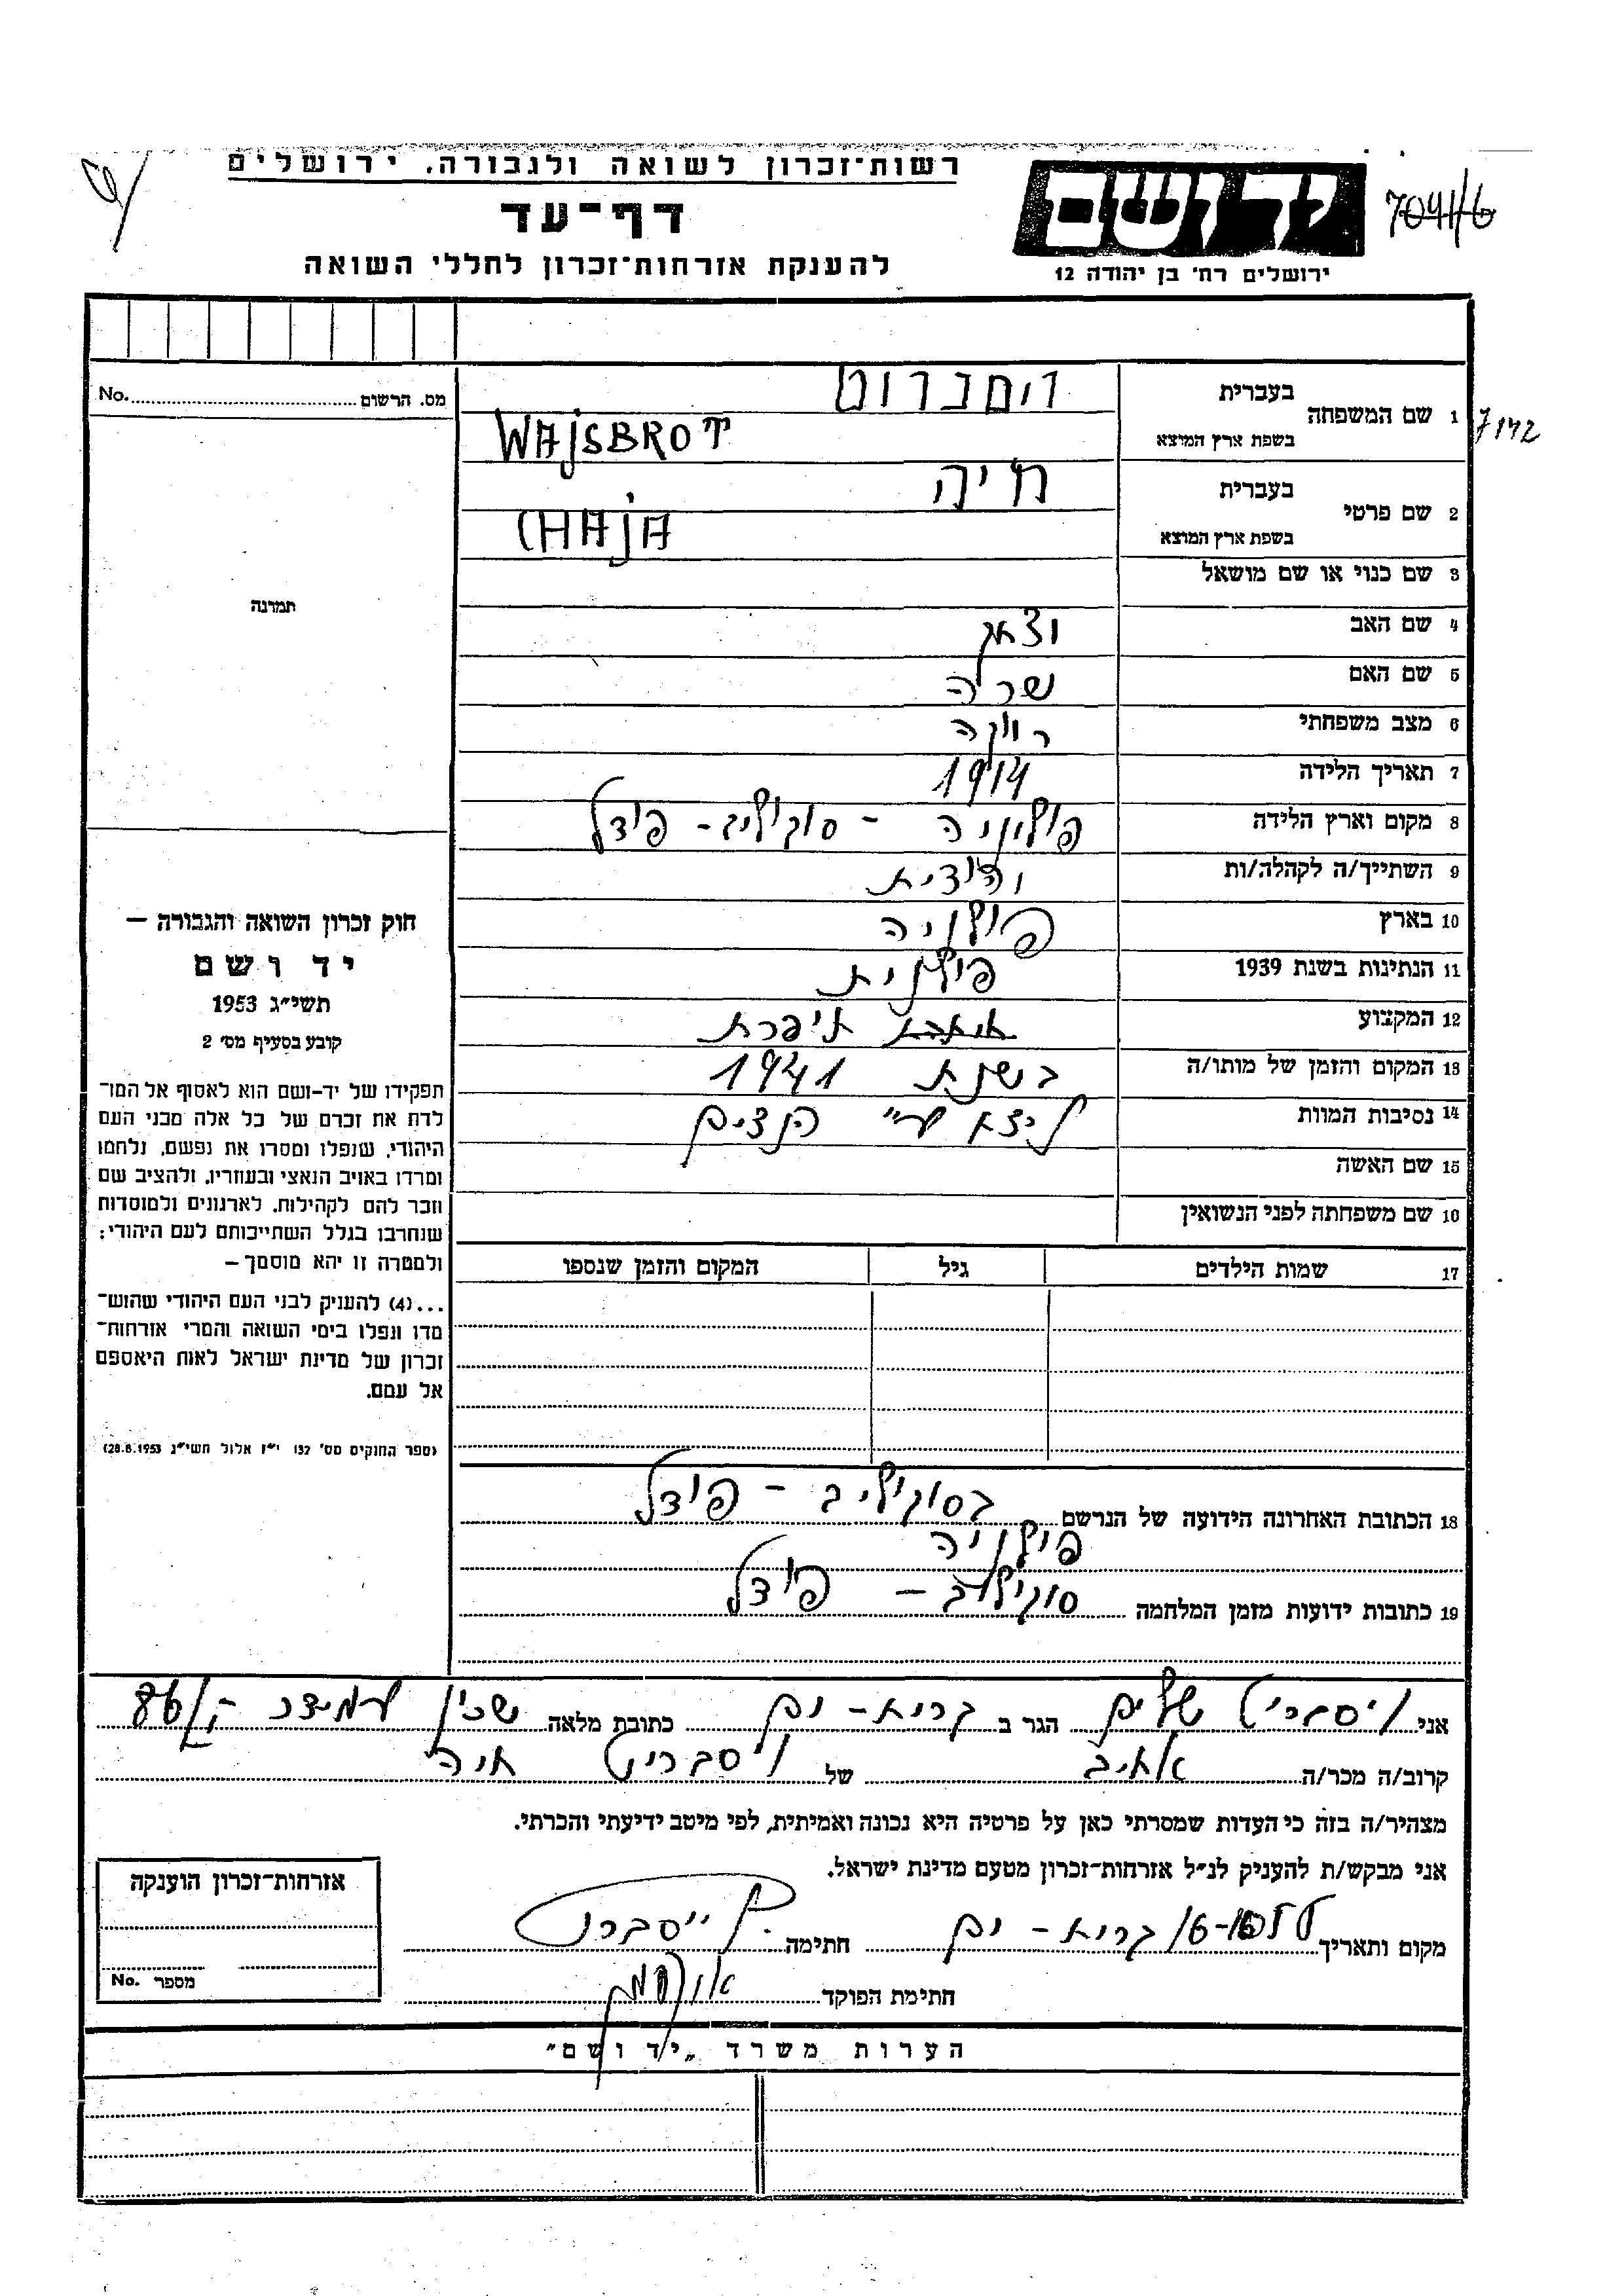 רשות־זכרון לשואה ולגבורה, ירושלים
דף־עד
להענקת אזרחות־זכרון לחללי השואה
ידושם
ירושלים רח׳ בן יהודה 12
מס. הרשום No.
1 שם המשפחה
בעברית ויסברוט
בשפת ארץ המוצא WAJSBROT
7142
2 שם פרטי
בעברית חיה
בשפת ארץ המוצא CHAJA
3 שם כנוי או שם מושאל
4 שם האב יצחק
5 שם האם שרה
6 מצב משפחתי רווקה
7 תאריך הלידה 1914
8 מקום וארץ הלידה פולוניה - סוקולוב - פודל
9 השתייך/ה לקהלה/ות יהודית
10 בארץ פולניה
11 הנתינות בשנת 1939 פולנית
12 המקצוע תופרת
13 המקום והזמן של מותו/ה בשנת 1941
14 נסיבות המוות ע"י הנצים
15 שם האשה
16 שם משפחתה לפני הנשואין
17 שמות הילדים גיל המקום והזמן שנספו
18 הכתובת האחרונה הידועה של הנרשם בסוקולוב - פודל
פולניה
19 כתובות ידועות מזמן המלחמה סוקולוב - פודל
תמונה
חוק זכרון השואה והגבורה —
יד ושם
תשי״ג 1953
קובע בסעיף מס׳ 2
תפקידו של יד-ושם הוא לאסוף אל המו־
לדת את זכרם של כל אלה מבני העם
היהודי, שנפלו ומסרו את נפשם, נלחמו
ומרדו באויב הנאצי ובעוזריו, ולהציב שם
וזכר להם לקהילות, לארגונים ולמוסדות
שנחרבו בגלל השתייכותם לעם היהודי;
ולמטרה זו יהא מוסמך —
...(4) להעניק לבני העם היהודי שהוש־
מדו ונפלו בימי השואה והמרי אזרחות־
זכרון של מדינת ישראל לאות היאספם
אל עמם.
(ספר החוקים מס׳ 132 י״ז אלול תשי״ג 28.8.1953)
אני ויסברוט שלום הגר ב קרית - ים כתובת מלאה שכון עמידר
קרוב/ה מכר/ה אחיב של ויסברוט חיה
מצהיר/ה בזה כי העדות שמסרתי כאן על פרטיה היא נכונה ואמיתית, לפי מיטב ידיעתי והכרתי.
אני מבקש/ת להעניק לנ״ל אזרחות־זכרון מטעם מדינת ישראל.
מקום ותאריך קרית - ים חתימה ש. ויסברוט
חתימת הפוקד
אזרחות־זכרון הוענקה
מספר No.
הערות משרד „יד ושם״